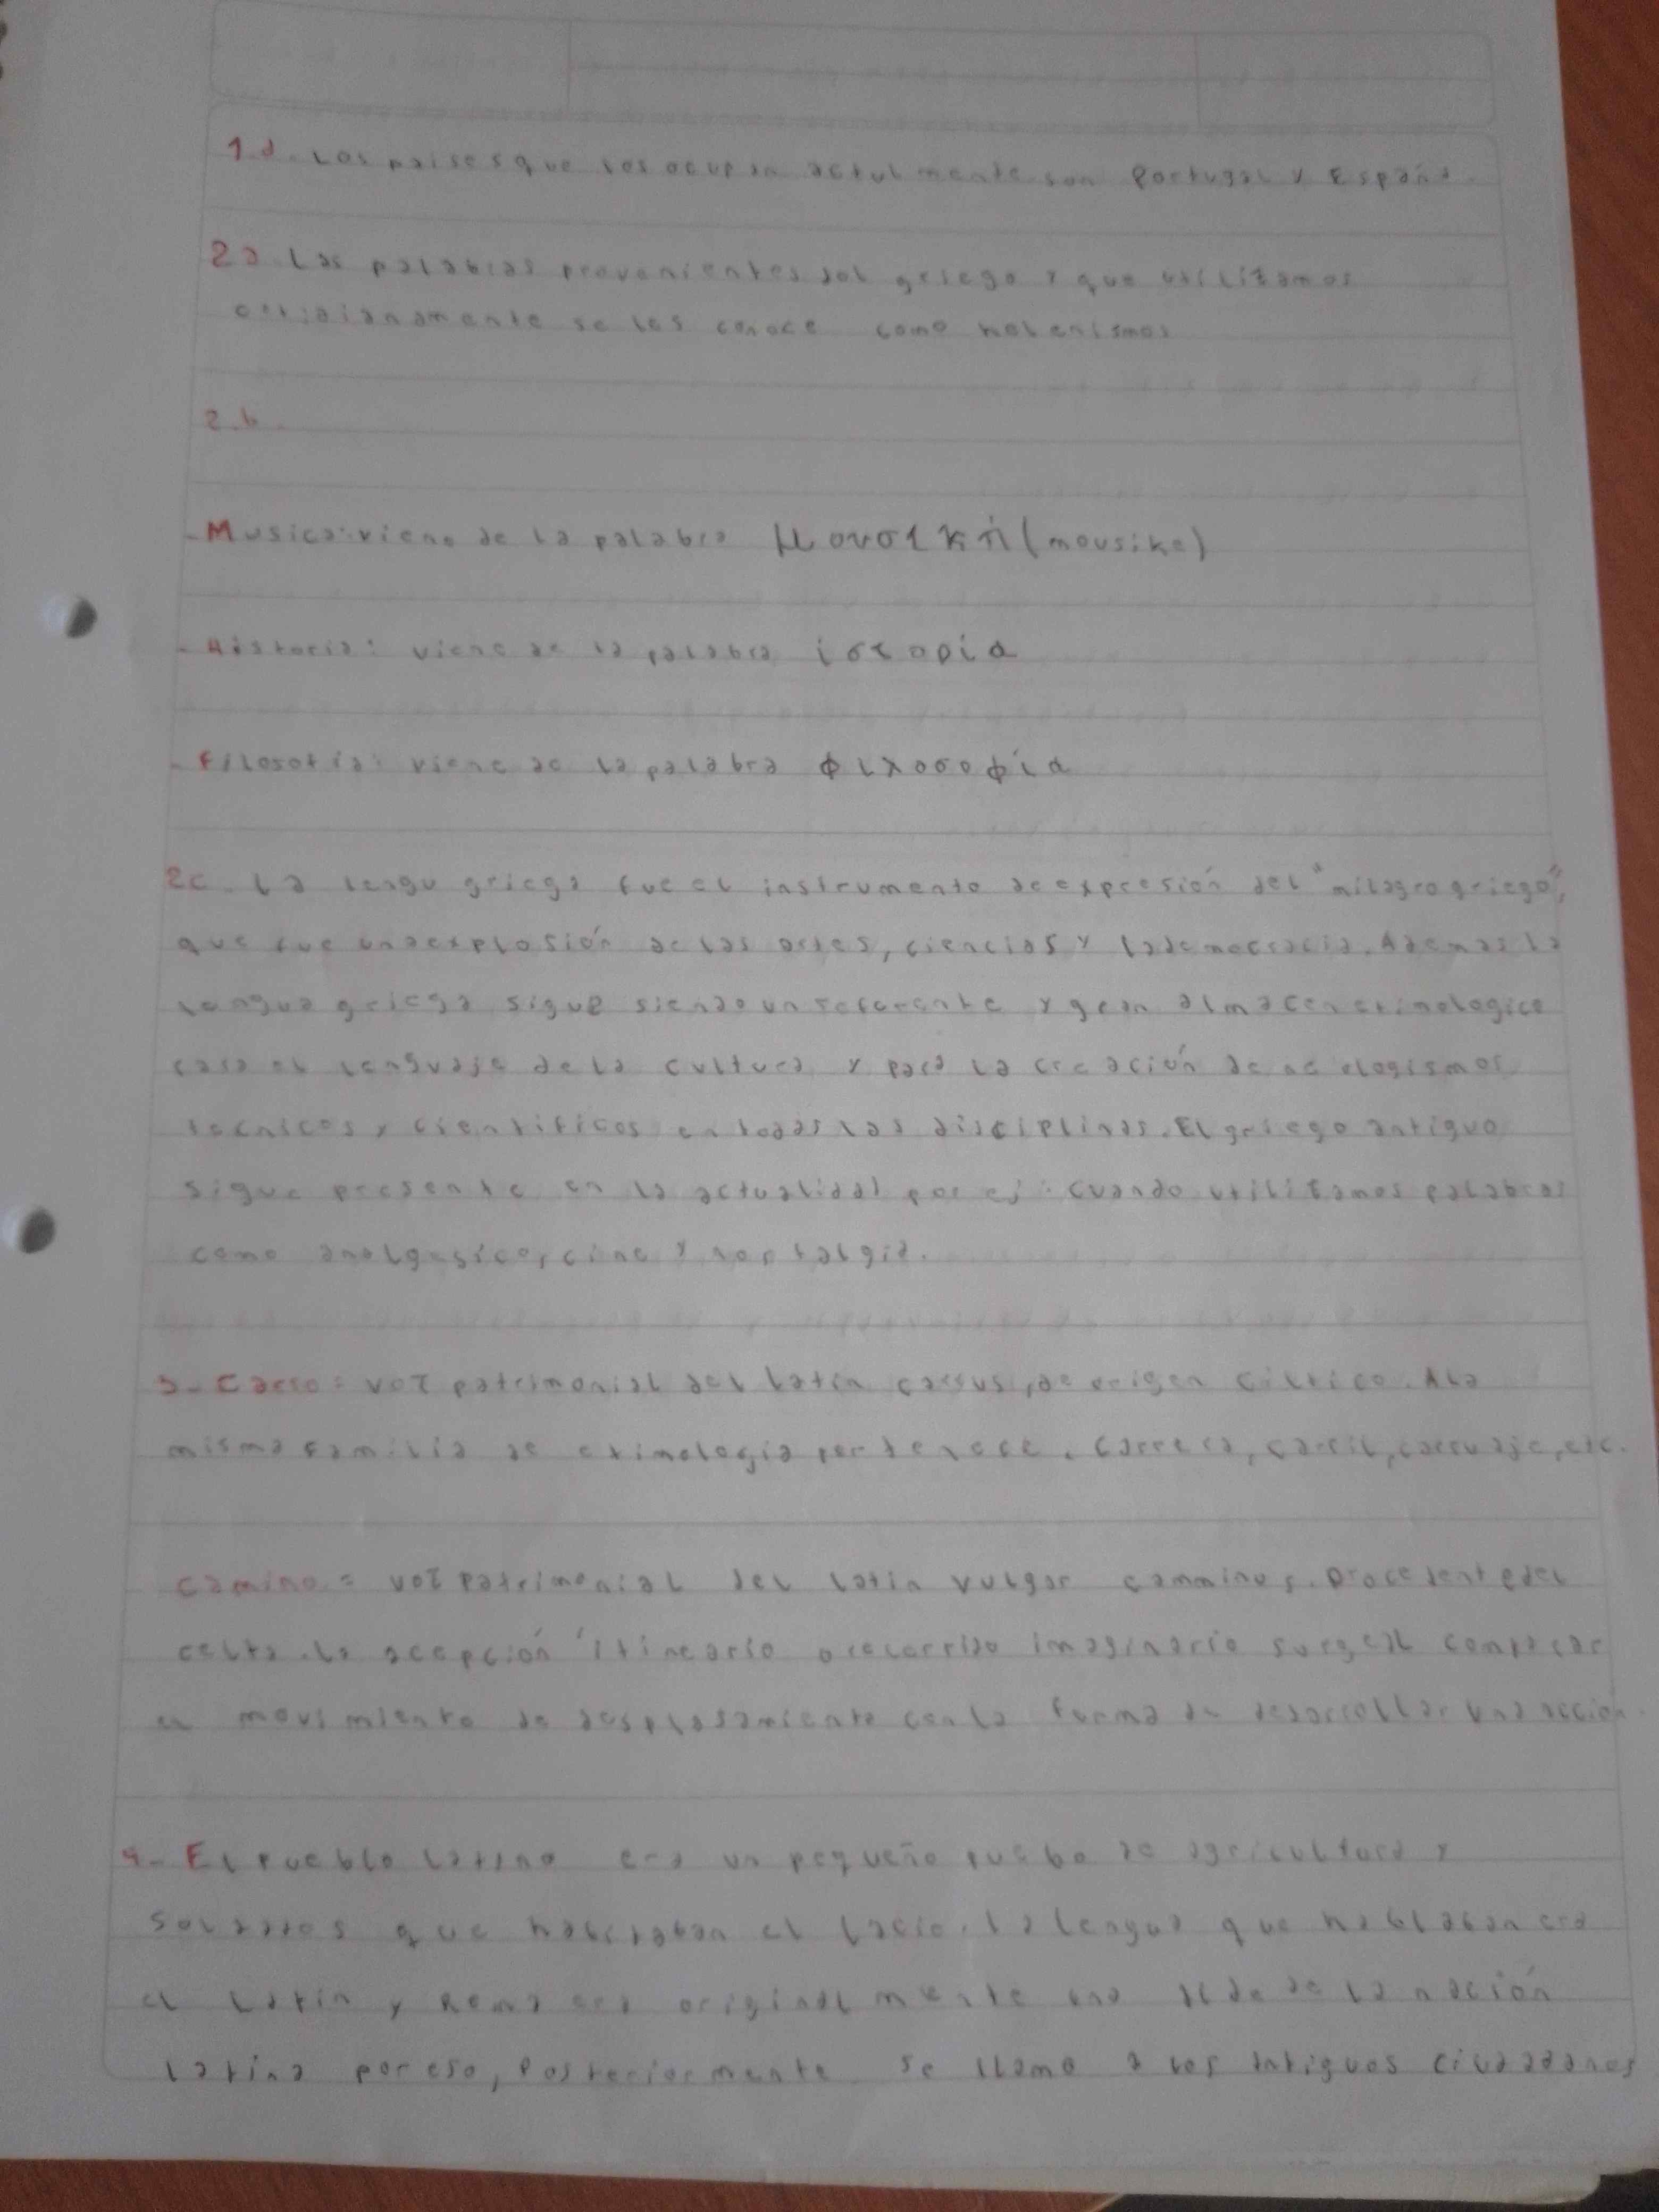 1d. Los paises que los ocupan actulmente son Portugal y España.
2a. Las palabras provenientes del griego y que utilizamos
cotidianamente se les conoce como helenismos
2.b.
- Musica: viene de la palabra μουσική (mousike)
- Historia: viene de la palabra ἱστορία
- Filosofia: viene de la palabra φιλοσοφία
2c. La lengu griega fue el instrumento de expresión del "milagro griego",
que fue una explosión de las artes, ciencias y la democracia. Ademas la
lengua griega sigue siendo un referente y gran almacen etimologico
para el lenguaje de la cultura y para la creación de neologismos
tecnicos y cientificos en todas las disciplinas. El griego antiguo
sigue presente en la actualidad por ej: cuando utilizamos palabras
como analgesico, cine y nostalgia.
3- Carro = voz patrimonial del latin carrus, de origen celtico. A la
misma familia de etimologia pertenece. Carrera, carril, carruaje, etc.
Camino = voz patrimonial del latin vulgar camminus. Procedente del
celta. La acepción 'itineario o recorrido imaginario surge al comparar
el movimiento de desplasamiento con la forma de desarrollar una acción.
4- El pueblo latino era un pequeño puebo de agricultura y
soldados que habitaban el Lacio. La lengua que hablaban era
el latin y Roma era originalmente una aldea de la nación
latina por eso, posteriormente se llamo a los antiguos ciudadanos